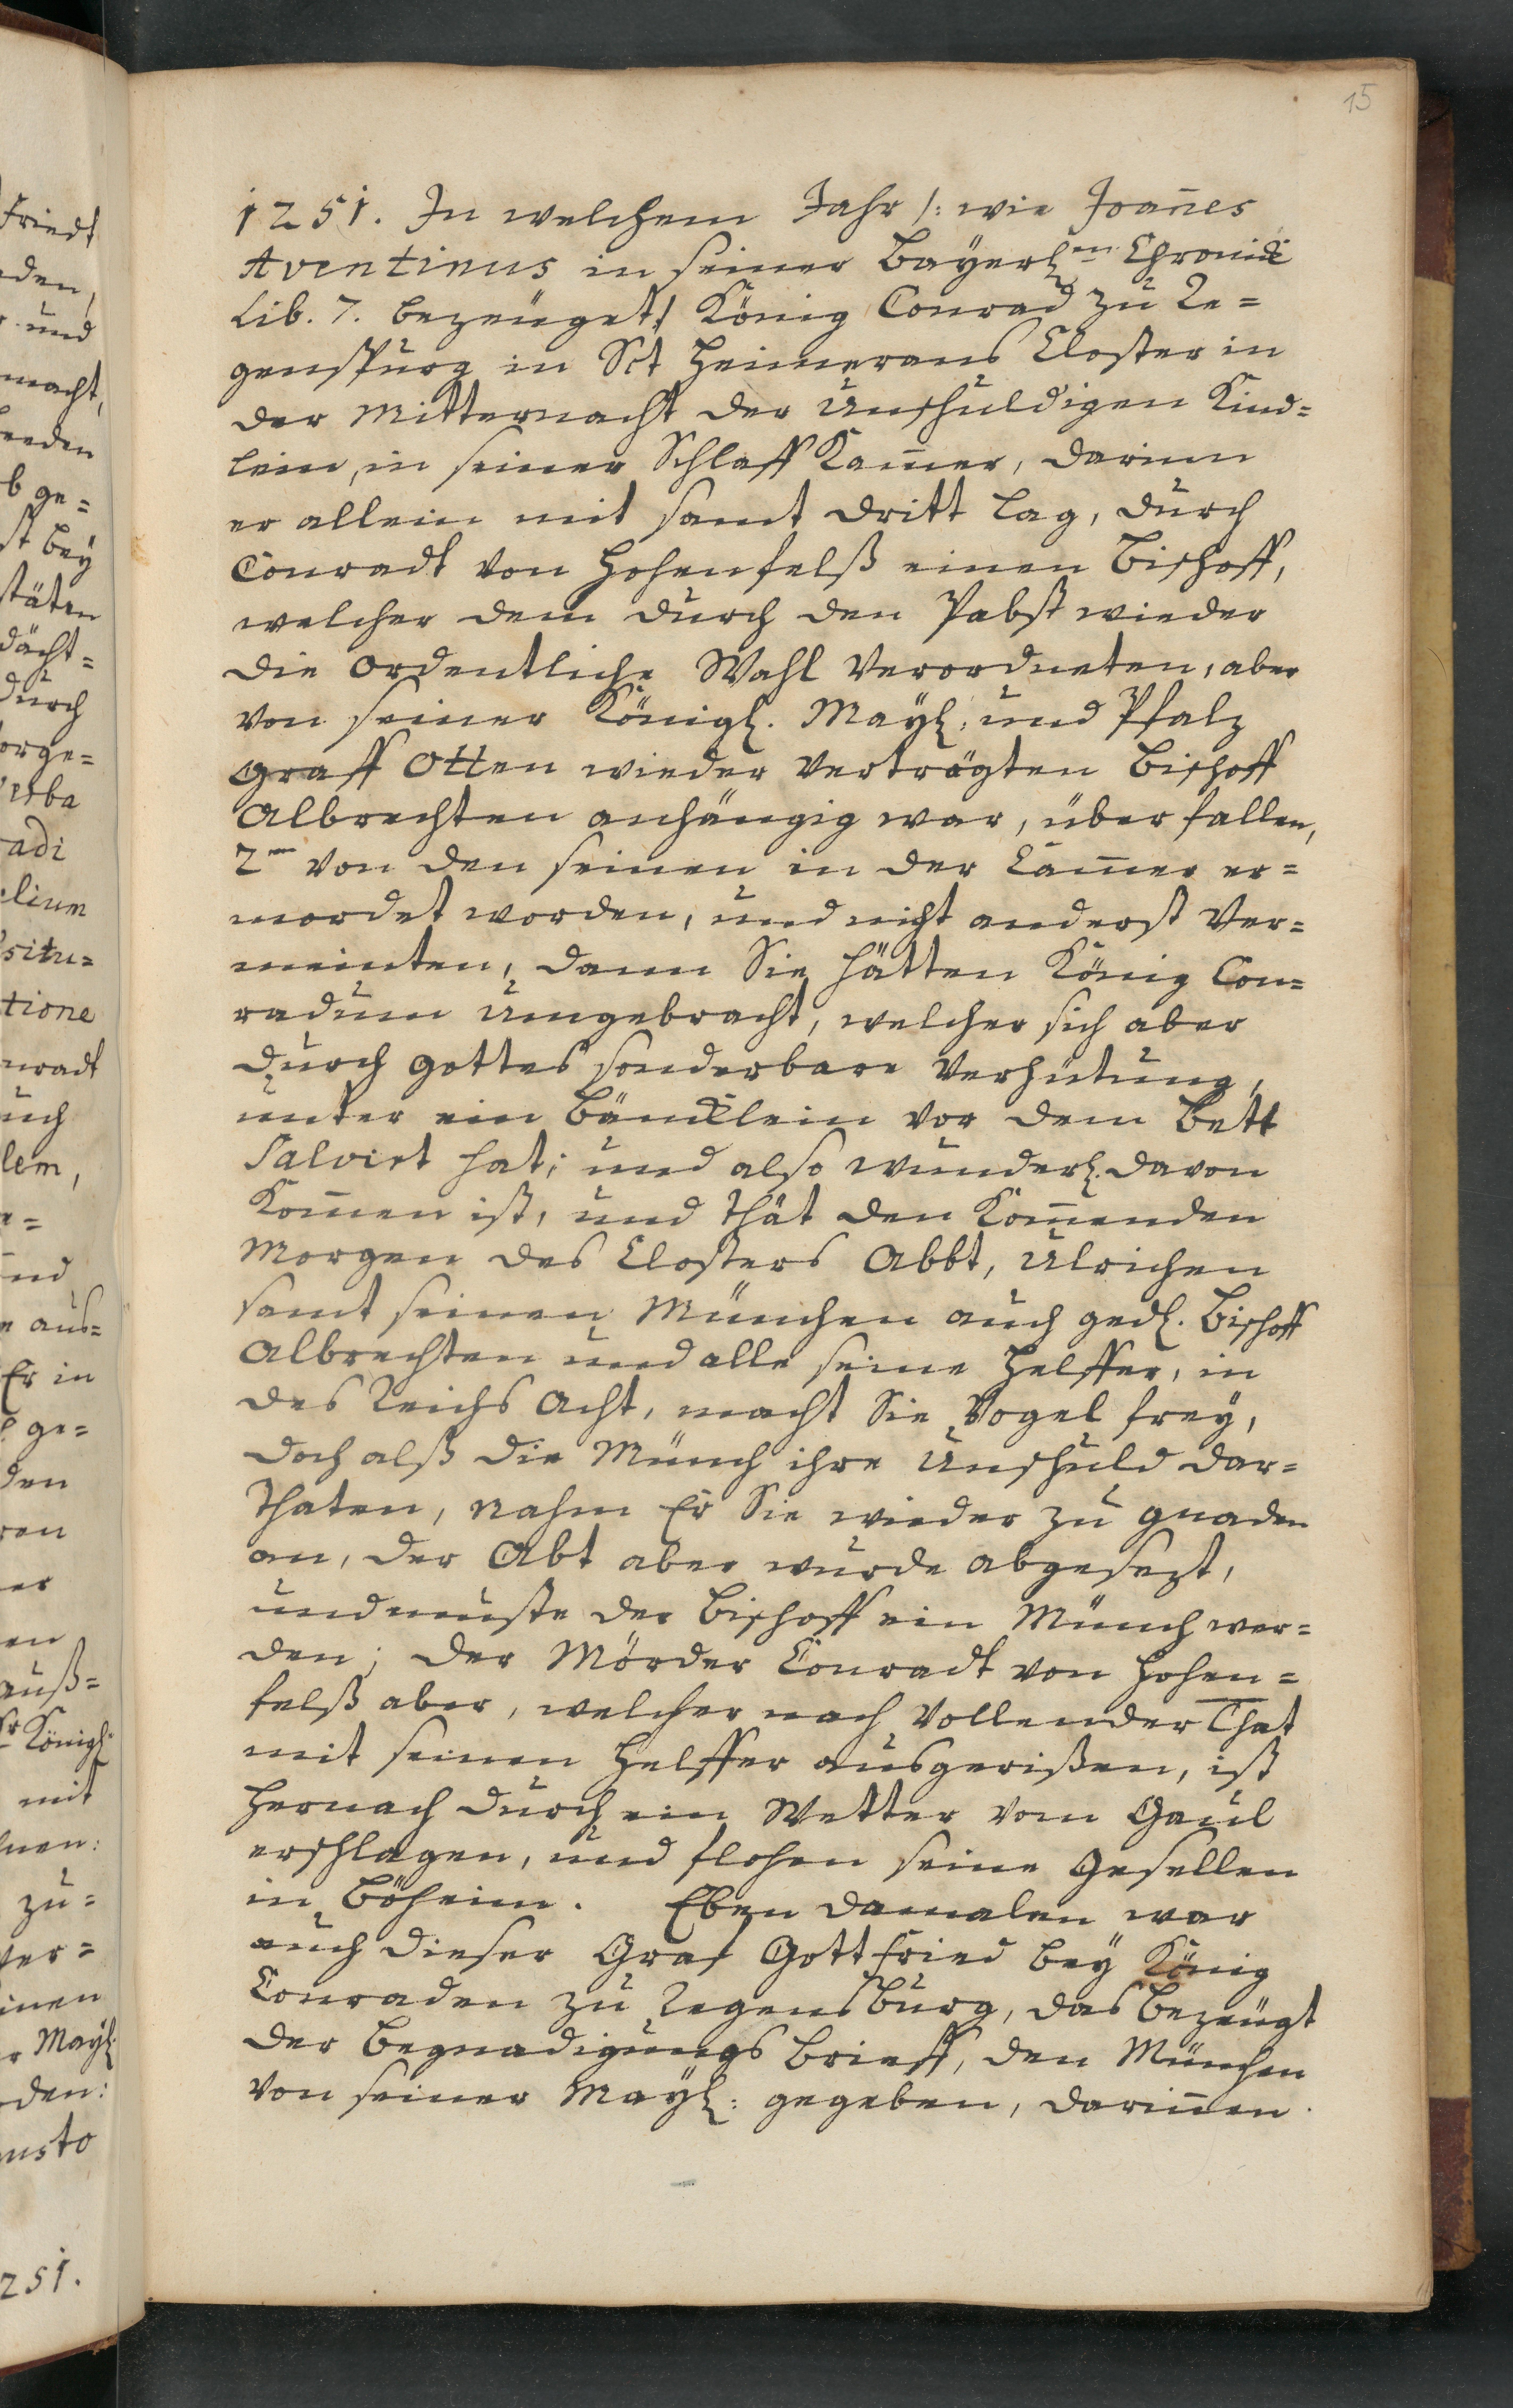 15
1251. In welchem Jahr /: wie Joan̄es
Aventinus in seiner Bayerl:en Chronic
Lib. 7. bezeuget :/ König Conrad zu Re=
genspurg in Sct Heimerans Closter in
der Mitternacht der Unschuldigen Kind=
lein, in seiner Schlaff Kam̄er, darinn
er allein mit samt dritt lag, durch
Conradt von Hohenfelß einen Bischoff,
welcher dem durch den Pabst wieder
die ordentliche Wahl Verordneten, aber
von seiner Königl. Mayl: und Pfalz
graff Otten wieder verträgten Bischoff
Albrechten anhängig war, überfallen,
2en von den seinen in der Cam̄er er=
mordet worden, und nicht anderst Ver=
meinten, dann Sie hätten König Con=
radum umgebracht, welcher sich aber
durch Gottes sonderbare Verhütung,
unter ein Bäncklein vor dem Bett
Salvirt hat; und also wunderl. davon
Kom̄en ist, und thät den Kom̄enden
Morgen des Closters Abbt, Ulrichen
samt seinen München auch gedl. Bischoff
Albrechten und alle seine Helffer, in
des Reichs Acht, macht Sie Vogel frey,
doch alß die Münch ihre Unschuld dar=
thaten, nahm Er Sie wieder zu gnaden
an, der Abt aber wurde abgesezt,
und muste der Bischoff ein Münch wer=
den; der Mörder Conradt von Hohen=
felß aber, welcher nach Vollender That
mit seinen Helffer ausgerißen, ist
hernach durch ein Wetter vom Gaul
erschlagen, und flohen seine Gesellen
in Böheim. Eben damalen war
auch dieser Graf Gottfried bey König
Conraden zu Regensburg, das bezeugt
der Begnadigungs Brieff, den München
von seiner Mayl: gegeben, darin̄en